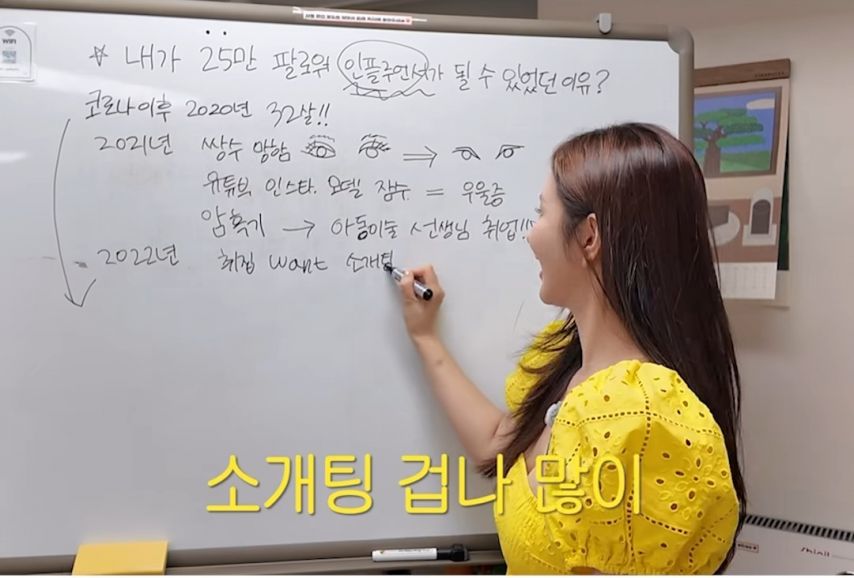 ☆ 내가 25만 팔로워 인플루언서가 될 수 있었던 이유?
코로나 이후 2020년 32살!!
2021년 쌍수 망함 ⇒
유튜브, 인스타, 모델 잠수 = 우울증
암흑기 → 아동미술 선생님 취업!!
2022년 취집 want 소개팅
소개팅 겁나 많이
wifi